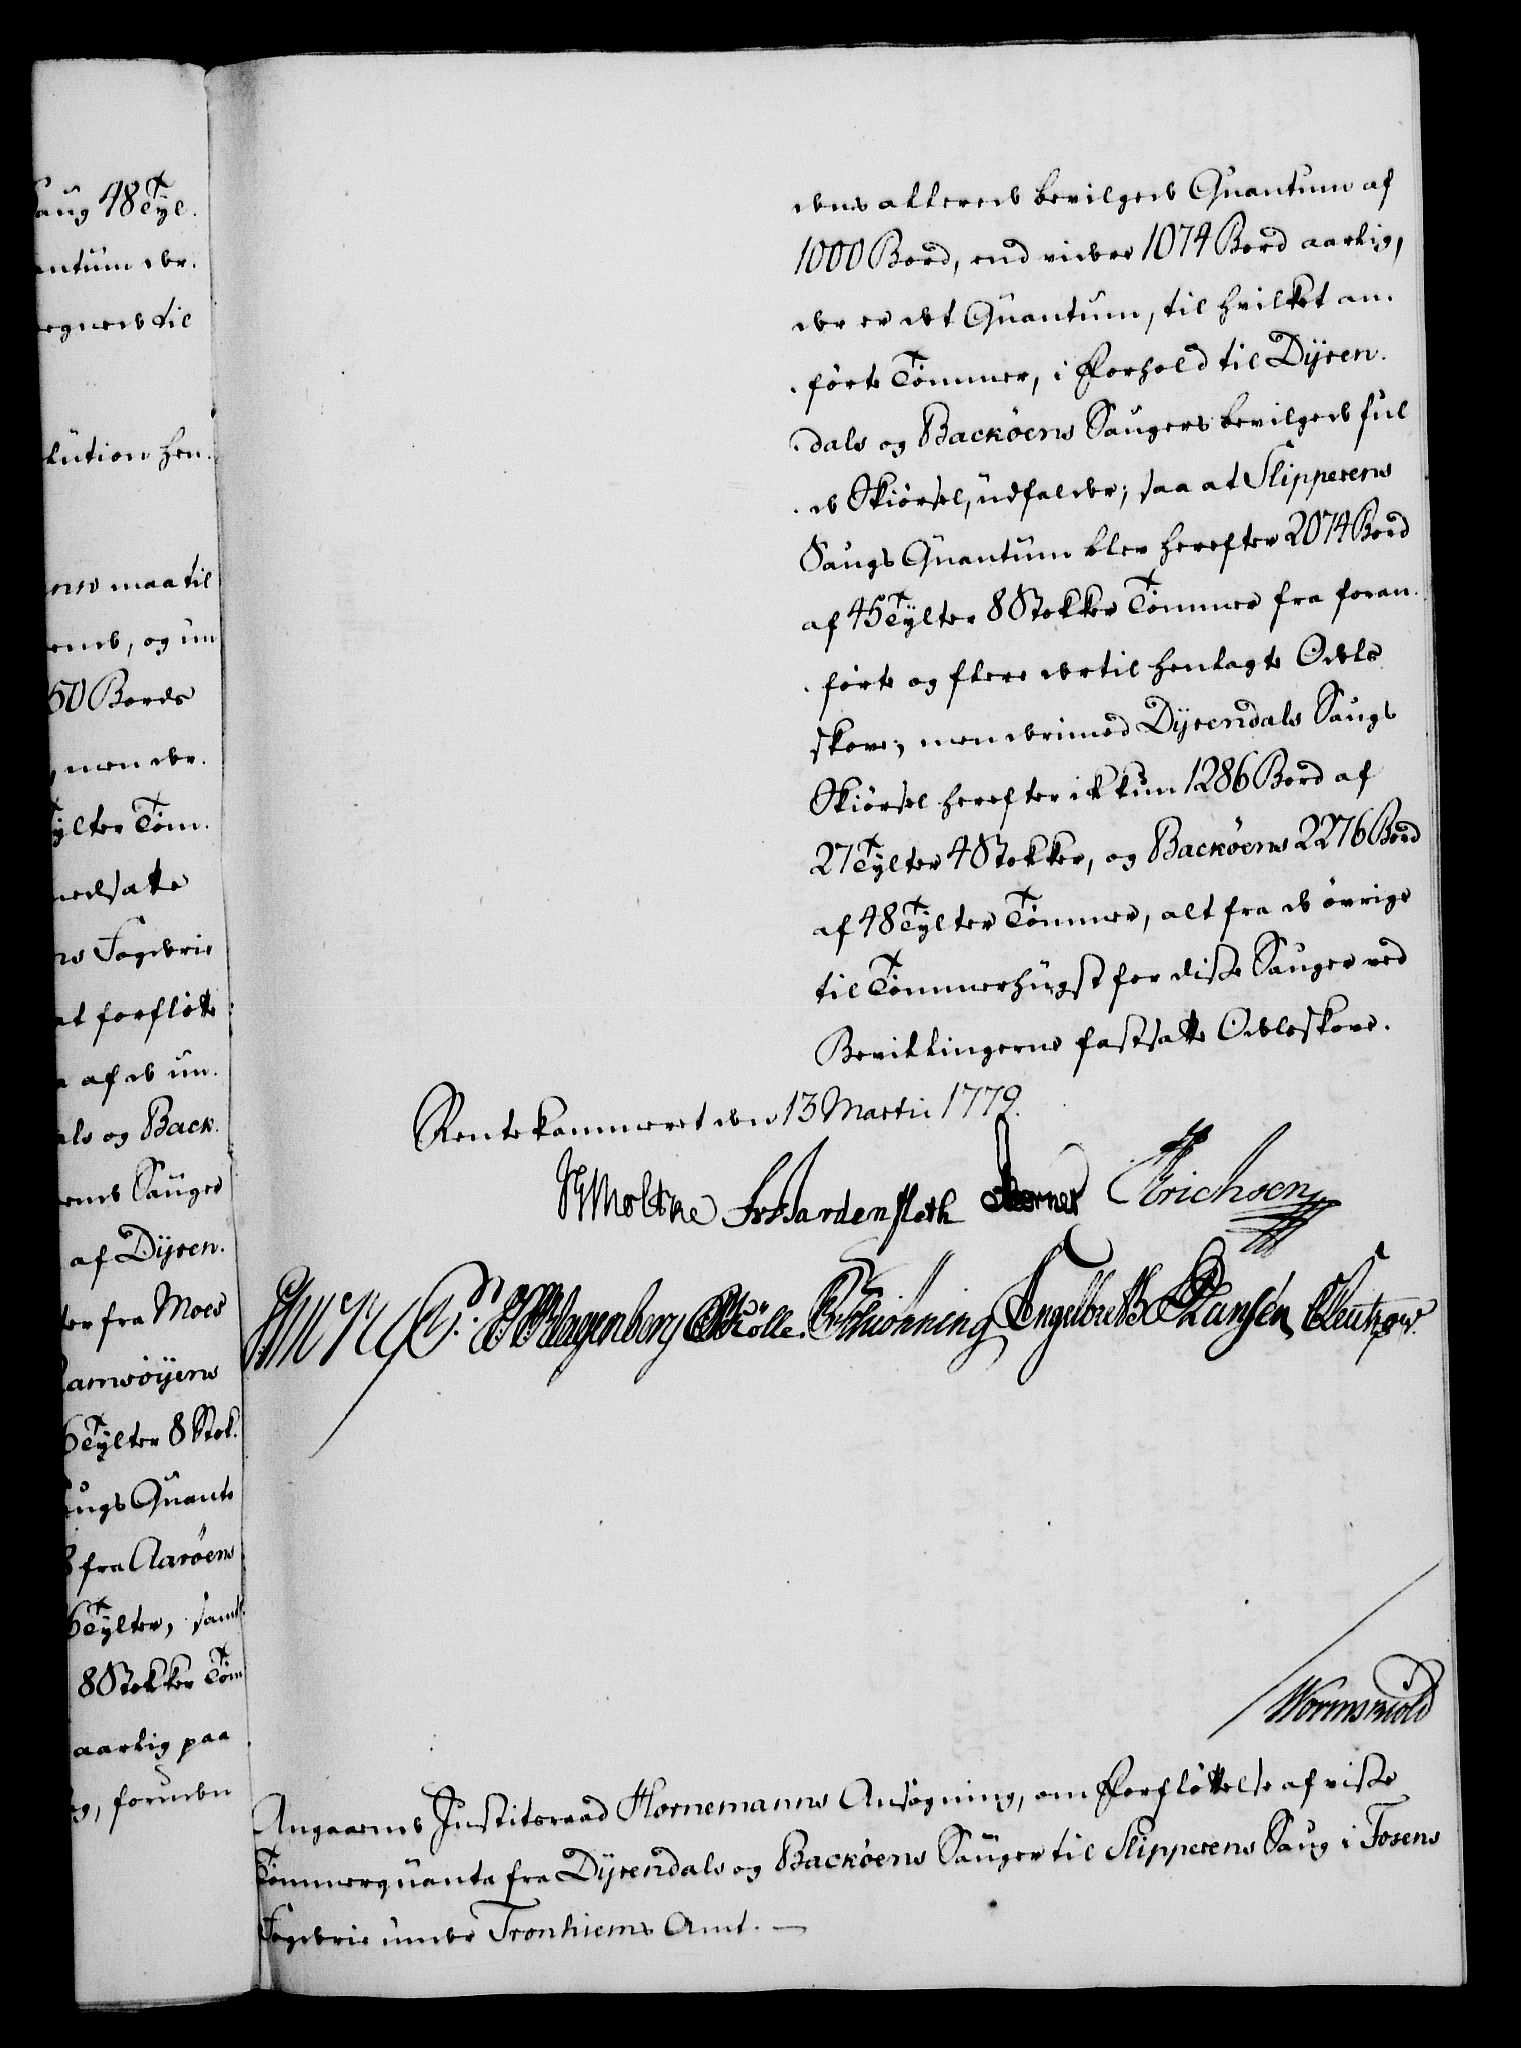 aug 48 Tyl-
antum der-
egnede til
lution hen-
ens maa til
ende, og un
50 Bords
men der-
ylter Tøm-
nedsatte
ns Fogderie
at forfløtte
af de un-
als og Back-
ende Sauger
af Dyren-
ter fra Moes
amsøyens
6 Tylter 8 Stok-
augs Quanto
fra Aarøens
6 Tylter, samt
8 Stokker Tøm
aarlig paa
g, foruden
dens allerede bevilgede Quantum af
1000 Bord, end videre 1074 Bord aarlig,
der er det Quantum, til hvilket an-
førte Tømmer, i Forhold til Dyren-
dals og Backøens Saugers bevilgede ful
de Skiørsel, udfalder; saa at Slipperens
Saugs Quantum blev herefter 2074 Bord
af 45 Tylter 8 Stokker Tømmer fra foran-
førte og flere dertil henlagte Odels
skove; men derimod Dyrendals Saugs
Skiørsel herefter ikkun 1286 Bord af
27 Tylter 4 Stokker, og Backøens 2276 Bord
af 48 Tylter Tømmer, alt fra de øvrige
til Tømmerhugst for disse Sauger ved
Bevillingerne fastsatte Odelsskove.
Rentekammeret den 13 Martii 1779.
Moltke Hardenfleth Erichsen
Klagenberg Thørning Engelbreth Hansén
Wormskiold
Angaaende Justitsraad Hornemanns Ansøgning, om Forfløttelse af visse
Tømmerquanta fra Dyrendals og Backøens Sauger til Slipperens Saug i Fosens
Fogderie under Tronhiems Amt. —